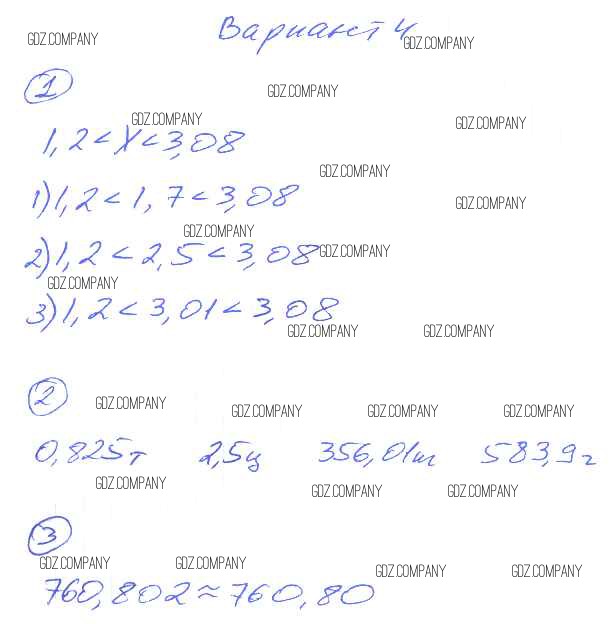 Вариант 4
GDZ.COMPANY GDZ.COMPANY
1
GDZ.COMPANY
GDZ.COMPANY GDZ.COMPANY
1,2 < x < 3,08
GDZ.COMPANY
1) 1,2 < 1,7 < 3,08
GDZ.COMPANY
GDZ.COMPANY
2) 1,2 < 2,5 < 3,08
GDZ.COMPANY
GDZ.COMPANY
3) 1,2 < 3,01 < 3,08
GDZ.COMPANY GDZ.COMPANY
2
GDZ.COMPANY GDZ.COMPANY GDZ.COMPANY GDZ.COMPANY
0,825т 2,5ц 356,01кг 583,9г
GDZ.COMPANY GDZ.COMPANY GDZ.COMPANY
3
GDZ.COMPANY GDZ.COMPANY GDZ.COMPANY GDZ.COMPANY
760,802 ≈ 760,80